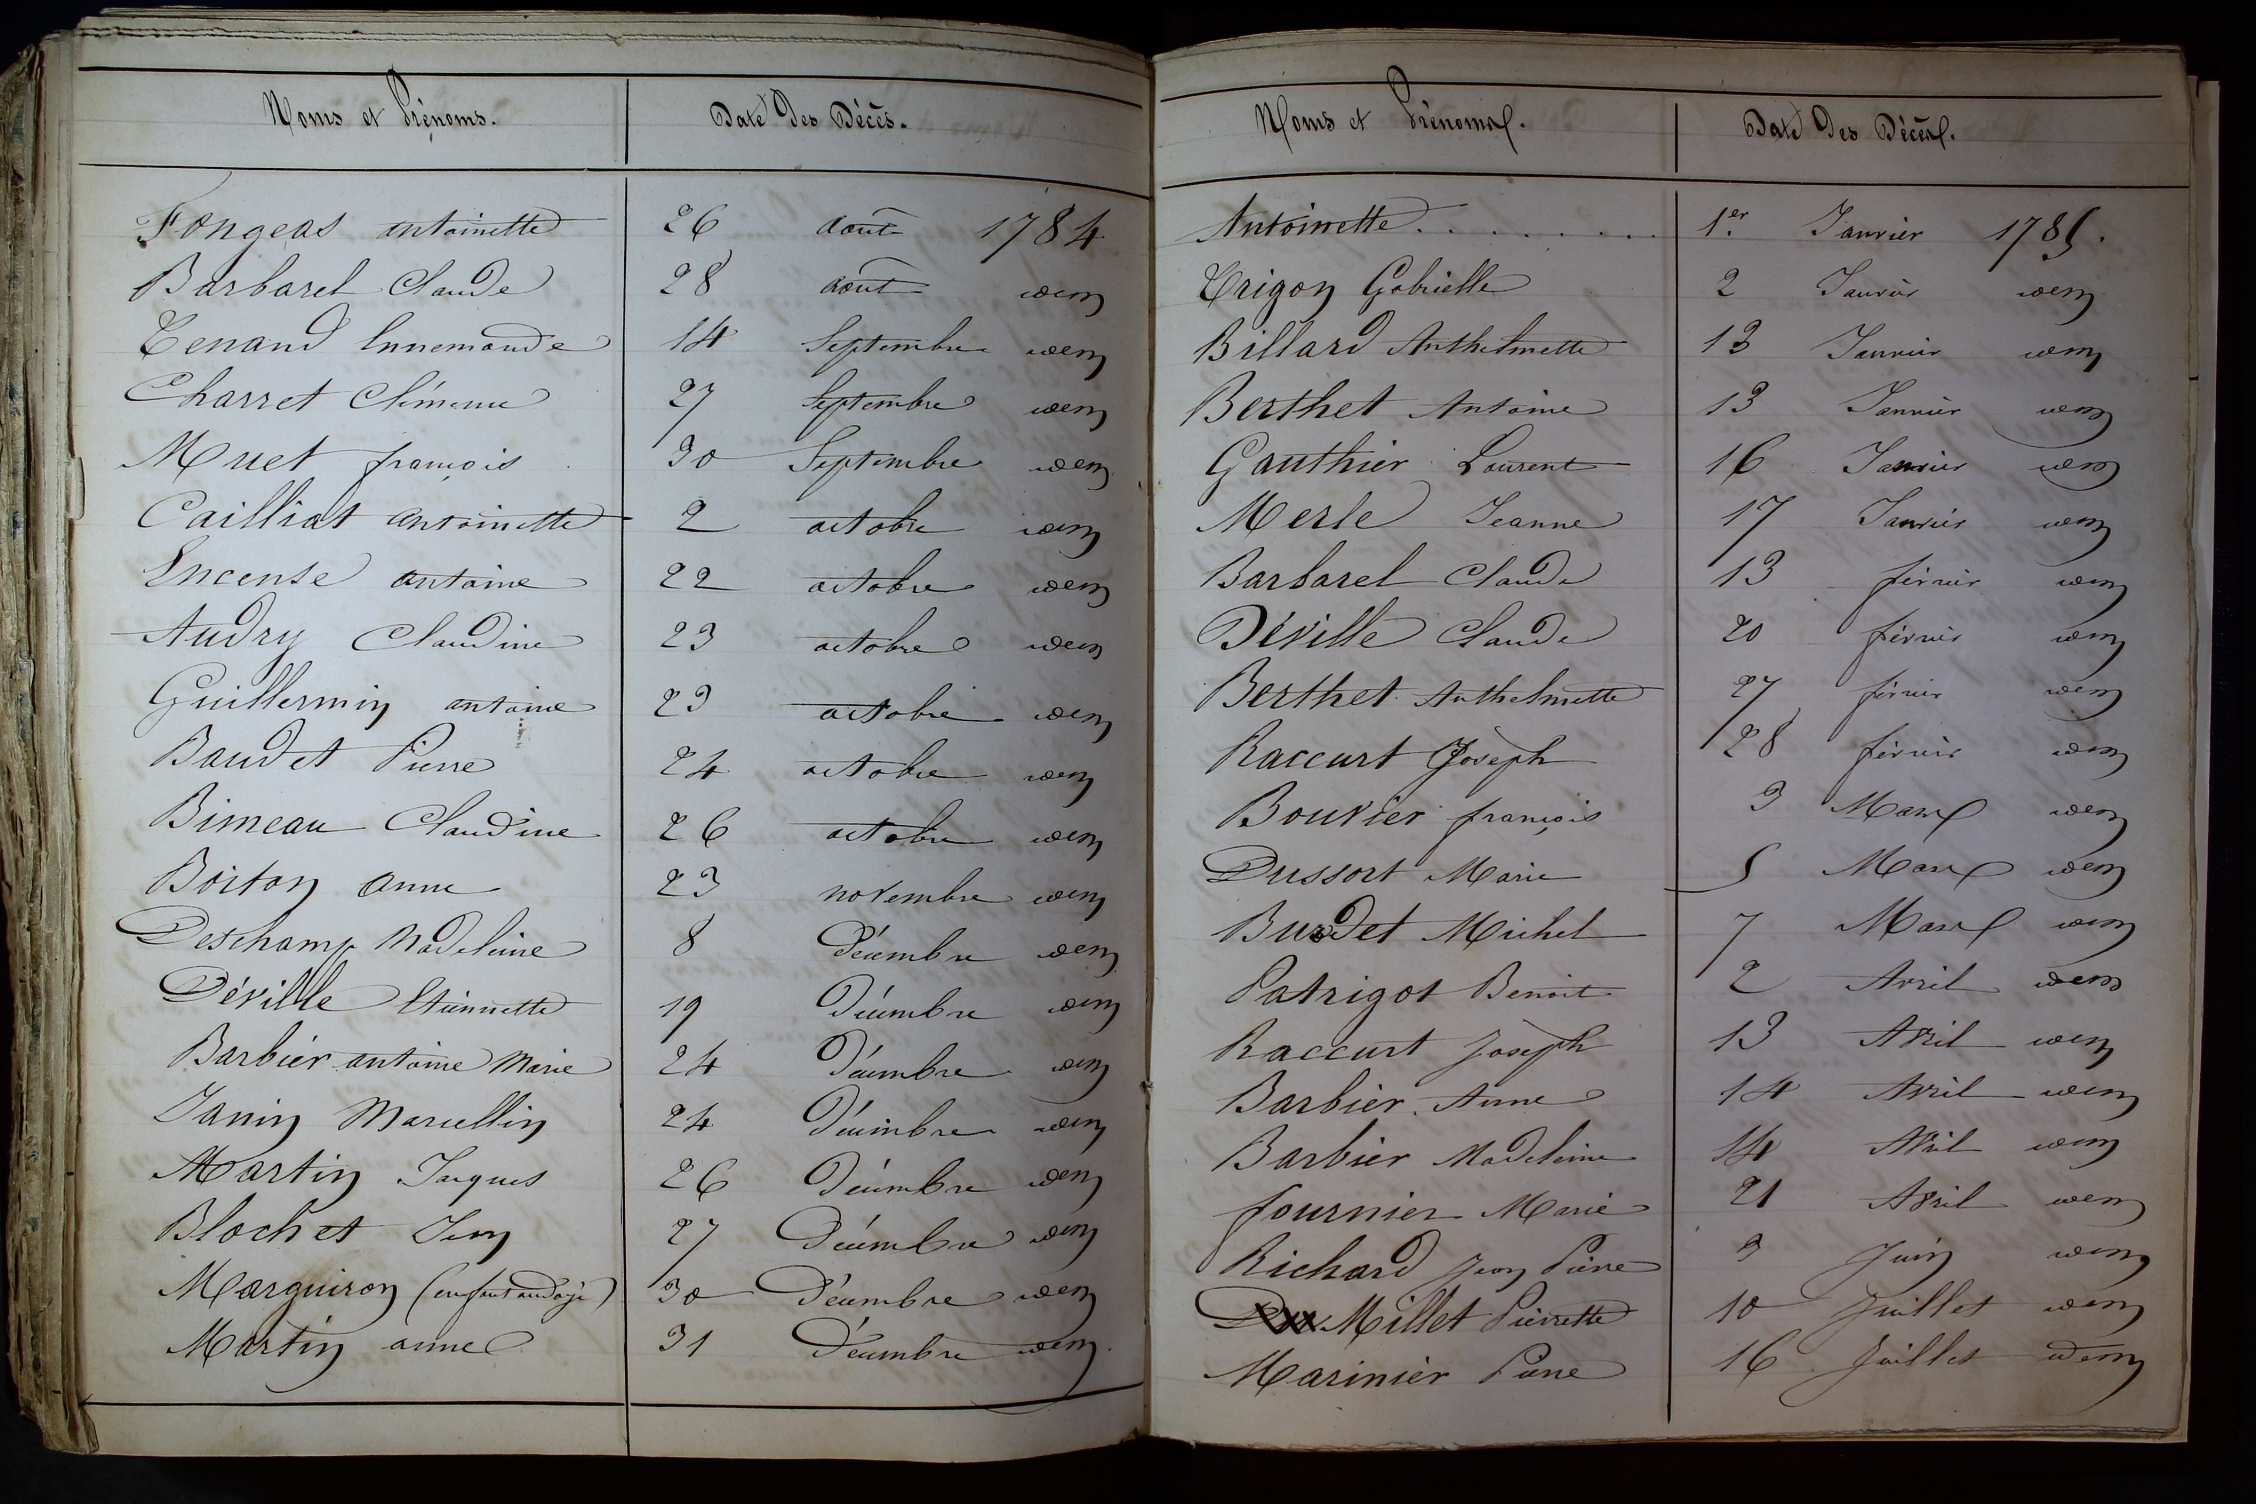 Noms et Prénoms. Date Des Décès.
Fongeas antoinette 26 août 1784
Barbarel Claude 28 août idem
Tenand Ennemonde 14 Septembre idem
Charret Clémence 27 Septembre idem
Muet françois 30 Septembre idem
Cailliat antoinette 2 octobre idem
Encense antoine 22 octobre idem
Audry Claudine 23 octobre idem
Guillermin antoine 23 octobre idem
Baudet Pierre 24 octobre idem
Bimeau Claudine 26 octobre idem
Boiton anne 23 novembre idem
Deschamp Madeleine 8 Décembre idem
Déville Etiennette 19 Décembre idem
Barbier antoine Marie 24 Décembre idem
Janin Marcellin 24 Décembre idem
Martin Jaques 26 Décembre idem
Blochet Jean 27 Décembre idem
Marguiron (enfant ondoyé) 30 Décembre idem
Martin anne 31 Décembre idem
Noms et Prénoms. Date Des Décès.
Antoinette . . . . . . . . . 1er Janvier 1785.
Trigon Gabrielle 2 Janvier idem
Billard Anthelmette 13 Janvier idem
Berthet Antoine 13 Janvier idem
Gauthier Laurent 16 Janvier idem
Merle Jeanne 17 Janvier idem
Barbarel Claude 13 février idem
Déville Claude 20 février idem
Berthet Anthelmette 27 février idem
Raccurt Joseph 28 février idem
Bouvier françois 3 Mars idem
Dussort Marie 5 Mars idem
Burdet Michel 7 Mars idem
Patrigot Benoit 2 Avril idem
Raccurt Joseph 13 Avril idem
Barbier Anne 14 Avril idem
Barbier Madeleine 14 Avril idem
fournier Marie 21 Avril idem
Richard Jean Pierre 3 Juin idem
Millet Pierrette 10 Juillet idem
Marinier Pierre 16 Juillet idem